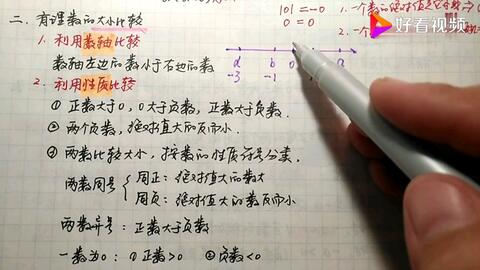 |0|=-0
0=0
1. 一个数的绝对值
2. 一个
好看视频
二、有理数的大小比较
1. 利用数轴比较
数轴左边的数小于右边的数
d b 0 a
-3 -1
2. 利用性质比较
① 正数大于0, 0大于负数, 正数大于负数.
② 两个负数, 绝对值大的反而小.
④ 两数比较大小, 按数的性质符号分类.
两数同号 { 同正: 绝对值大的数大
同负: 绝对值大的数反而小
两数异号: 正数大于负数
一数为0: ① 正数>0 ② 负数<0